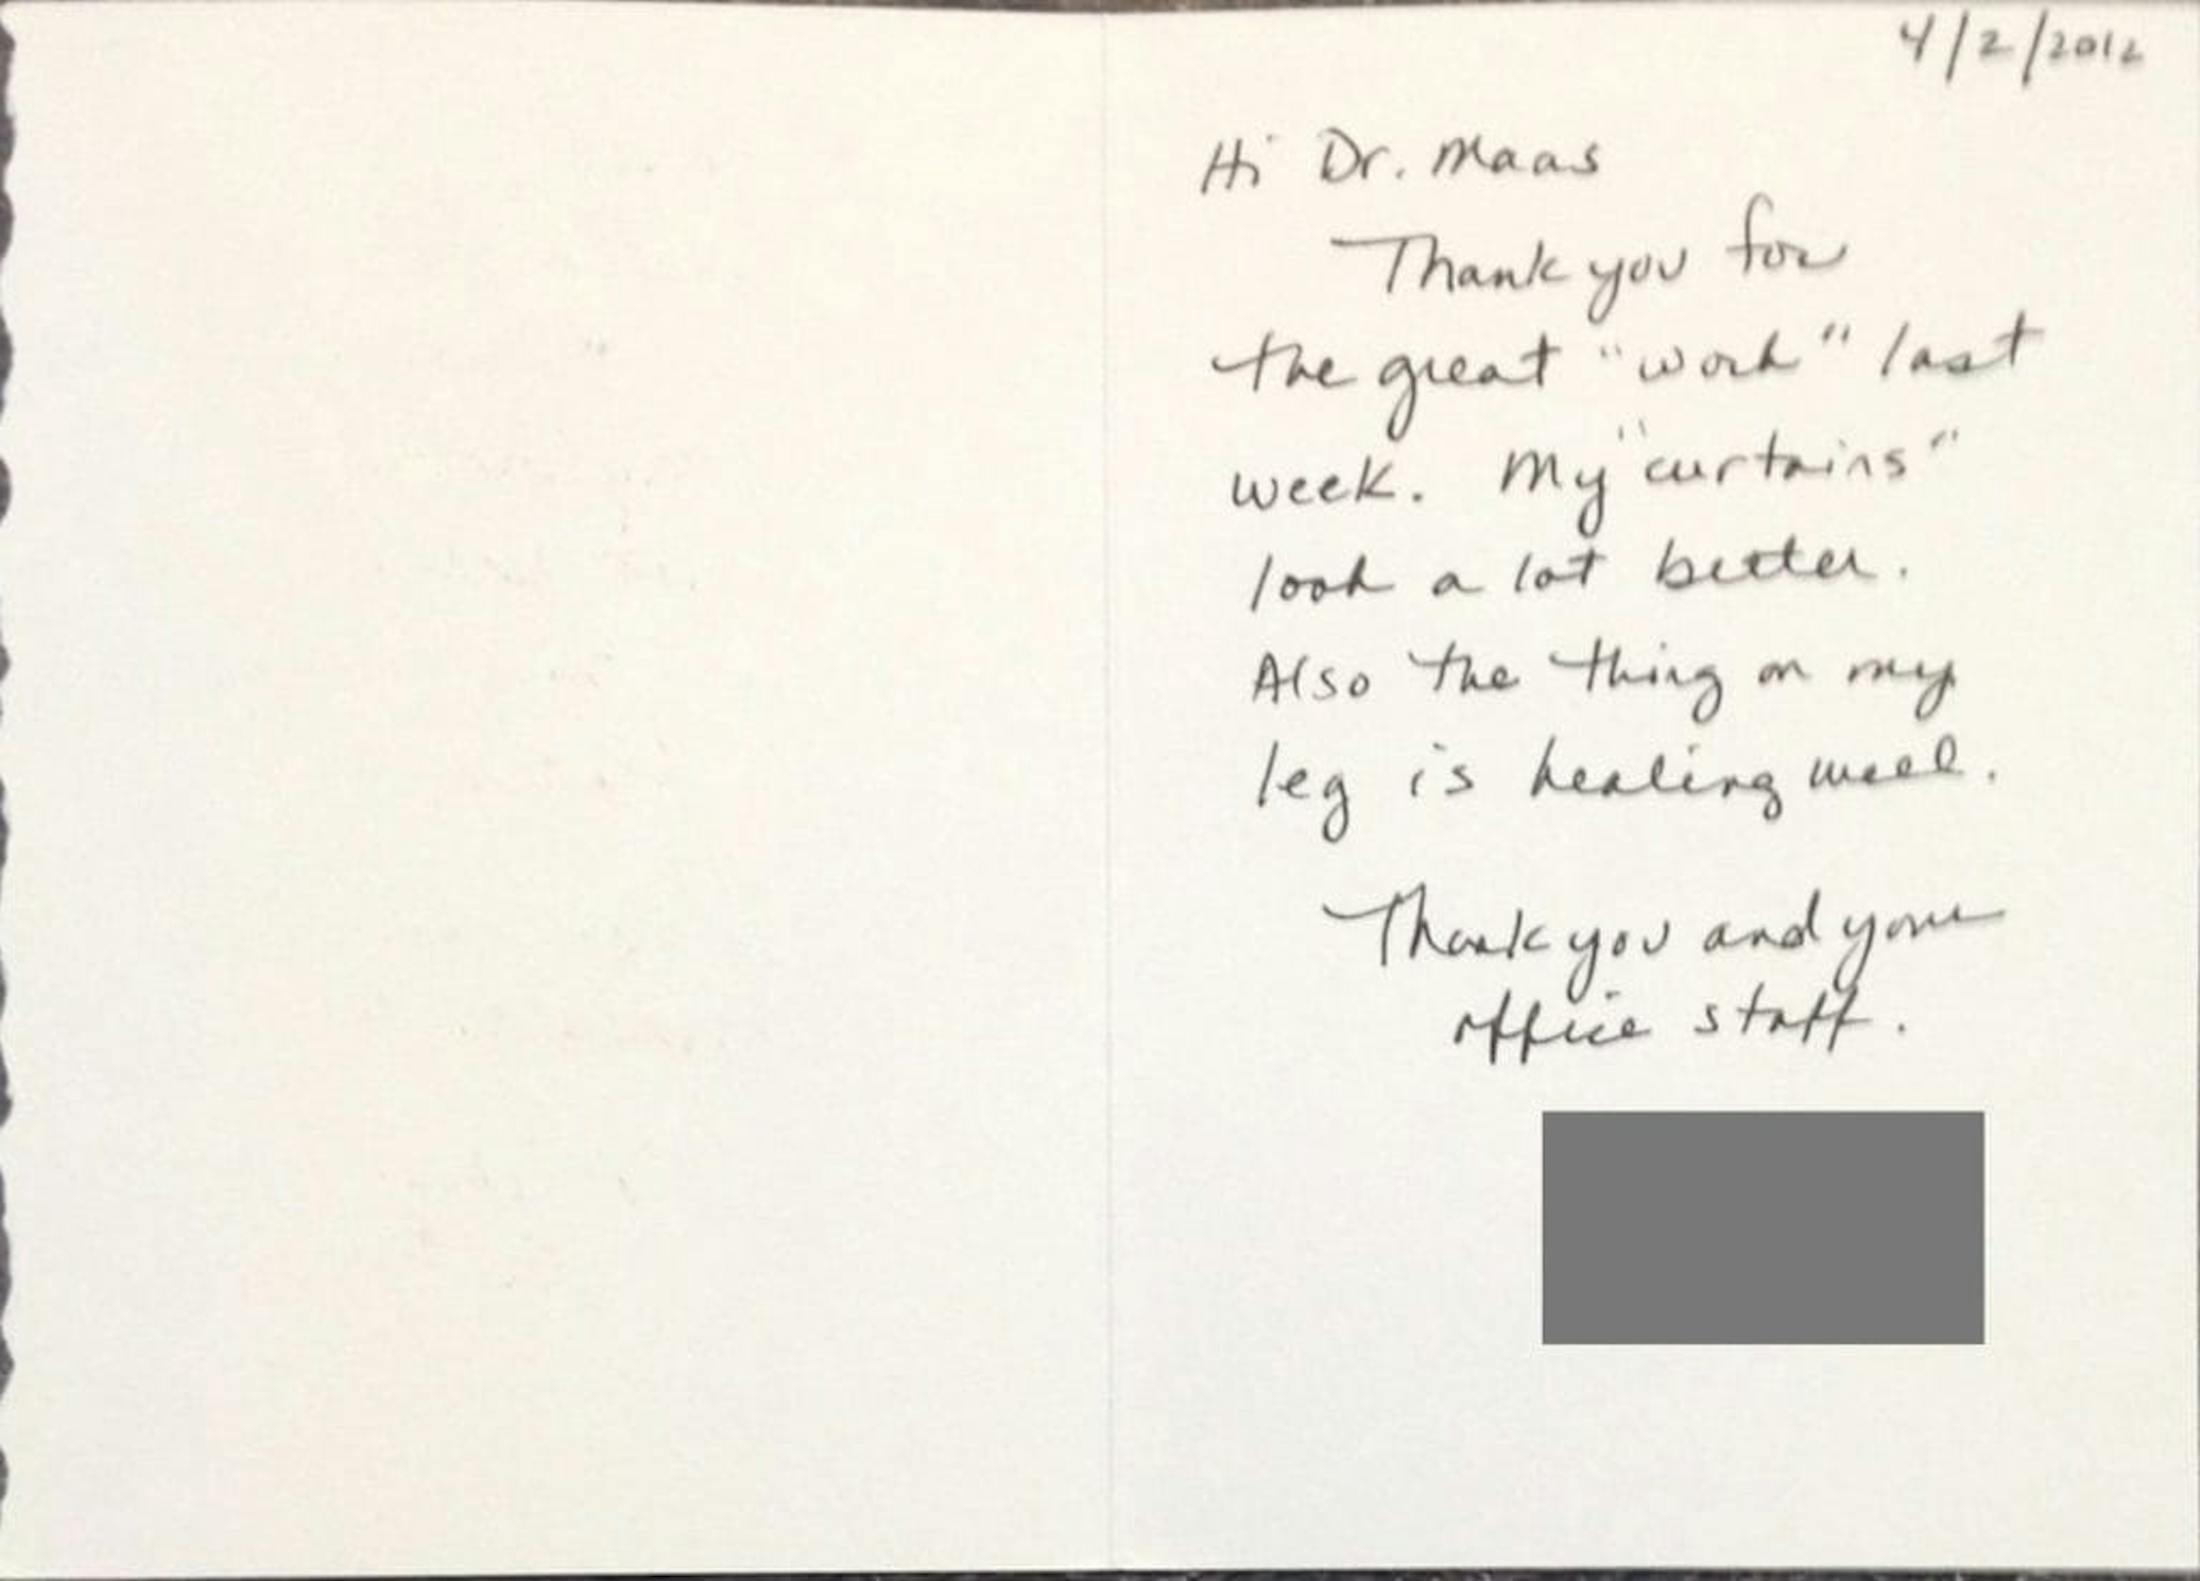 4/2/2012
Hi Dr. Maas
Thank you for
the great "work" last
week. My "curtains"
look a lot better.
Also the thing on my
leg is healing well.
Thank you and your
office staff.